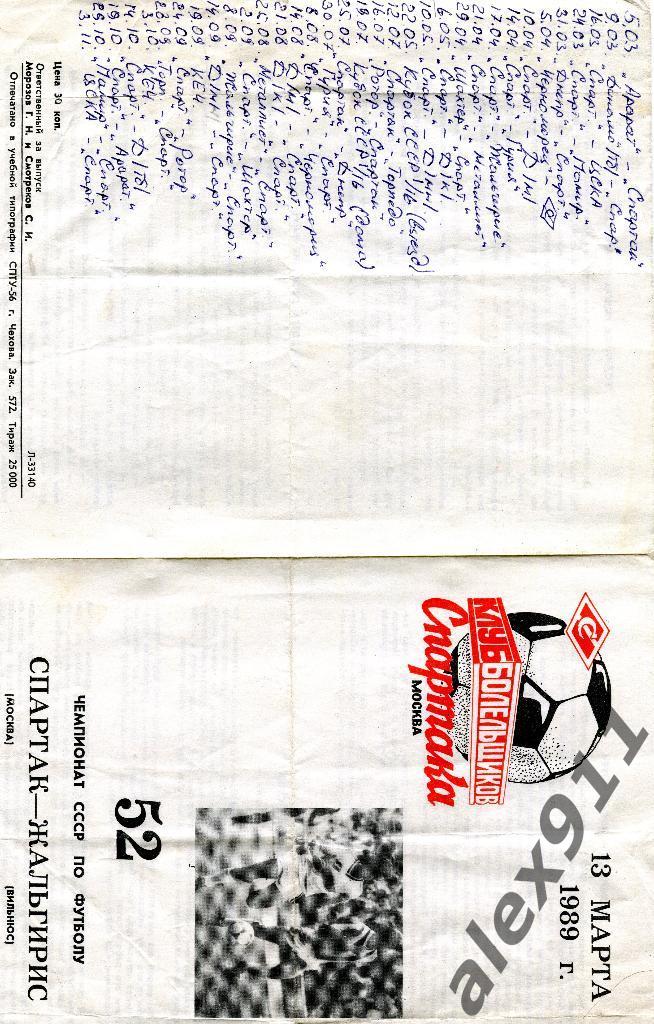 5.03 „Арарат" – „Спартак"
9.03 „Динамо" Тб – Спар.
16.03 „Спарт." – ЦСКА
24.03 „Спарт." – „Памир"
31.03 „Днепр" – „Спарт."
5.04 „Черноморец"
10.04 „Спарт." – Д/М/
14.04 „Спарт." – „Гурия"
17.04 „Спарт." – „Жальгирис"
21.04 „Спарт." – „Металлист"
29.04 „Шахтер" – „Спарт."
6.05 „Спарт." – Д/К/
10.05 „Спарт. – Д/Мн/
22.05 Кубок СССР 1/16 (выезд)
12.07 „Спартак" – „Торпедо"
16.07 „Ротор" – „Спартак"
19.07 Кубок СССР 1/16 (дома)
25.07 „Спартак" – „Днепр"
30.07 „Гурия" – „Спарт."
8.08 „Спарт." – „Черноморец"
14.08 Д/М/ – „Спарт."
21.08 Д/К/ – „Спарт."
25.08 „Металлист" – „Спарт."
2.09 „Спарт." – „Шахтер"
8.09 „Жальгирис" – „Спарт."
14.09 Д/Мн/ – „Спарт."
19.09 КЕЧ
24.09 „Спарт." – „Ротор"
28.09 „Торп." – „Спарт."
3.10 КЕЧ
14.10 „Спарт." – Д/Тб/
19.10 „Спарт." – „Арарат"
29.10 „Памир" – „Спарт."
3.11. ЦСКА – „Спарт."
Цена 30 коп.
Ответственный за выпуск
Морозов Г. Н. и Смотреков С. И.
Л-33140
Отпечатано в учебной типографии СПТУ-56 г. Чехова. Зак. 572. Тираж 25 000
КЛУБ БОЛЕЛЬЩИКОВ
Спартака
МОСКВА
13 МАРТА
1989 г.
52
ЧЕМПИОНАТ СССР ПО ФУТБОЛУ
СПАРТАК—ЖАЛЬГИРИС
(МОСКВА) (ВИЛЬНЮС)
alex911